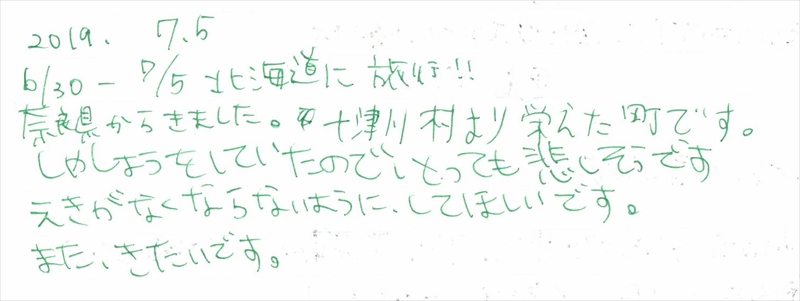 2019. 7.5
6/30 - 7/5 北海道に旅行!!
奈良県からきました。十津川村より栄えた町です。
しゃしょうをしていたので、とっても悲しそうです
えきがなくならないように、してほしいです。
また、きたいです。